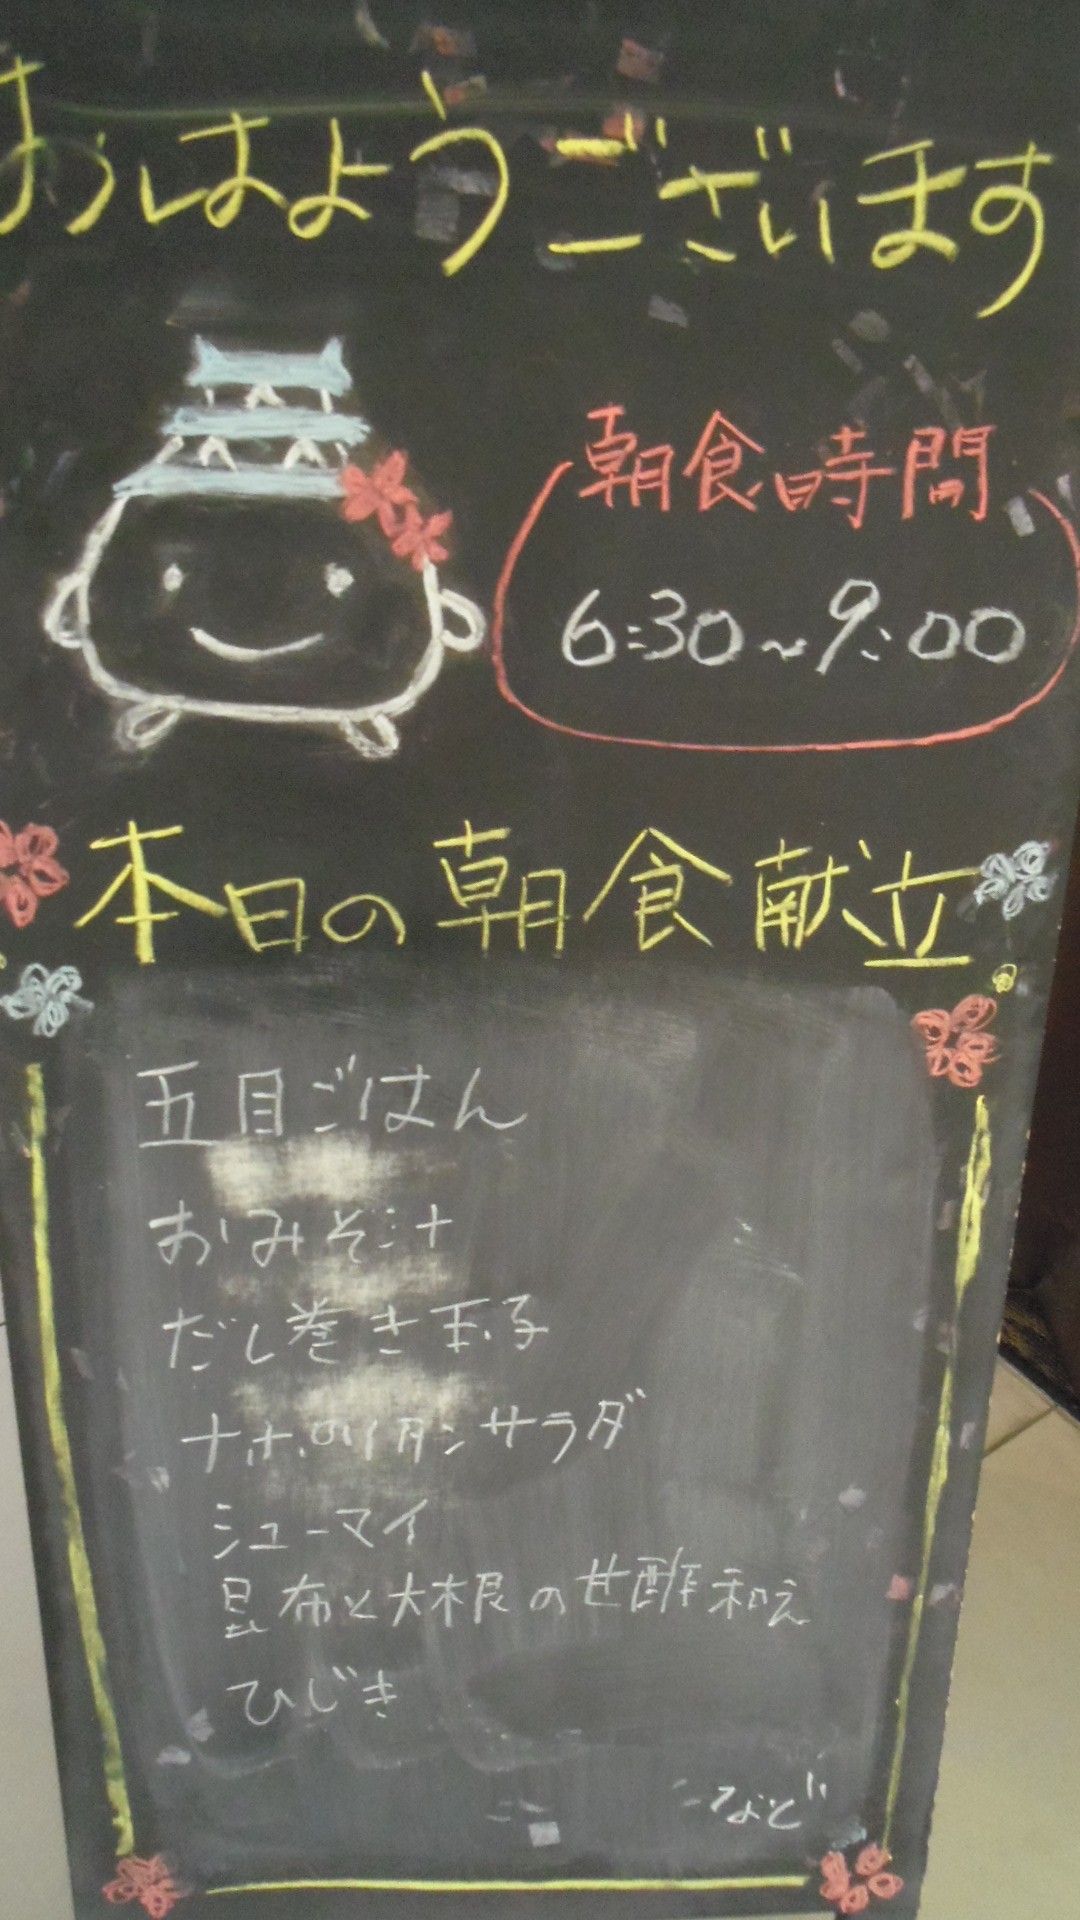 おはようございます
朝食時間
6:30~9:00
本日の朝食献立
五目ごはん
おみそ汁
だし巻き玉子
ナポリタンサラダ
シューマイ
昆布と大根の甘酢和え
ひじき
など